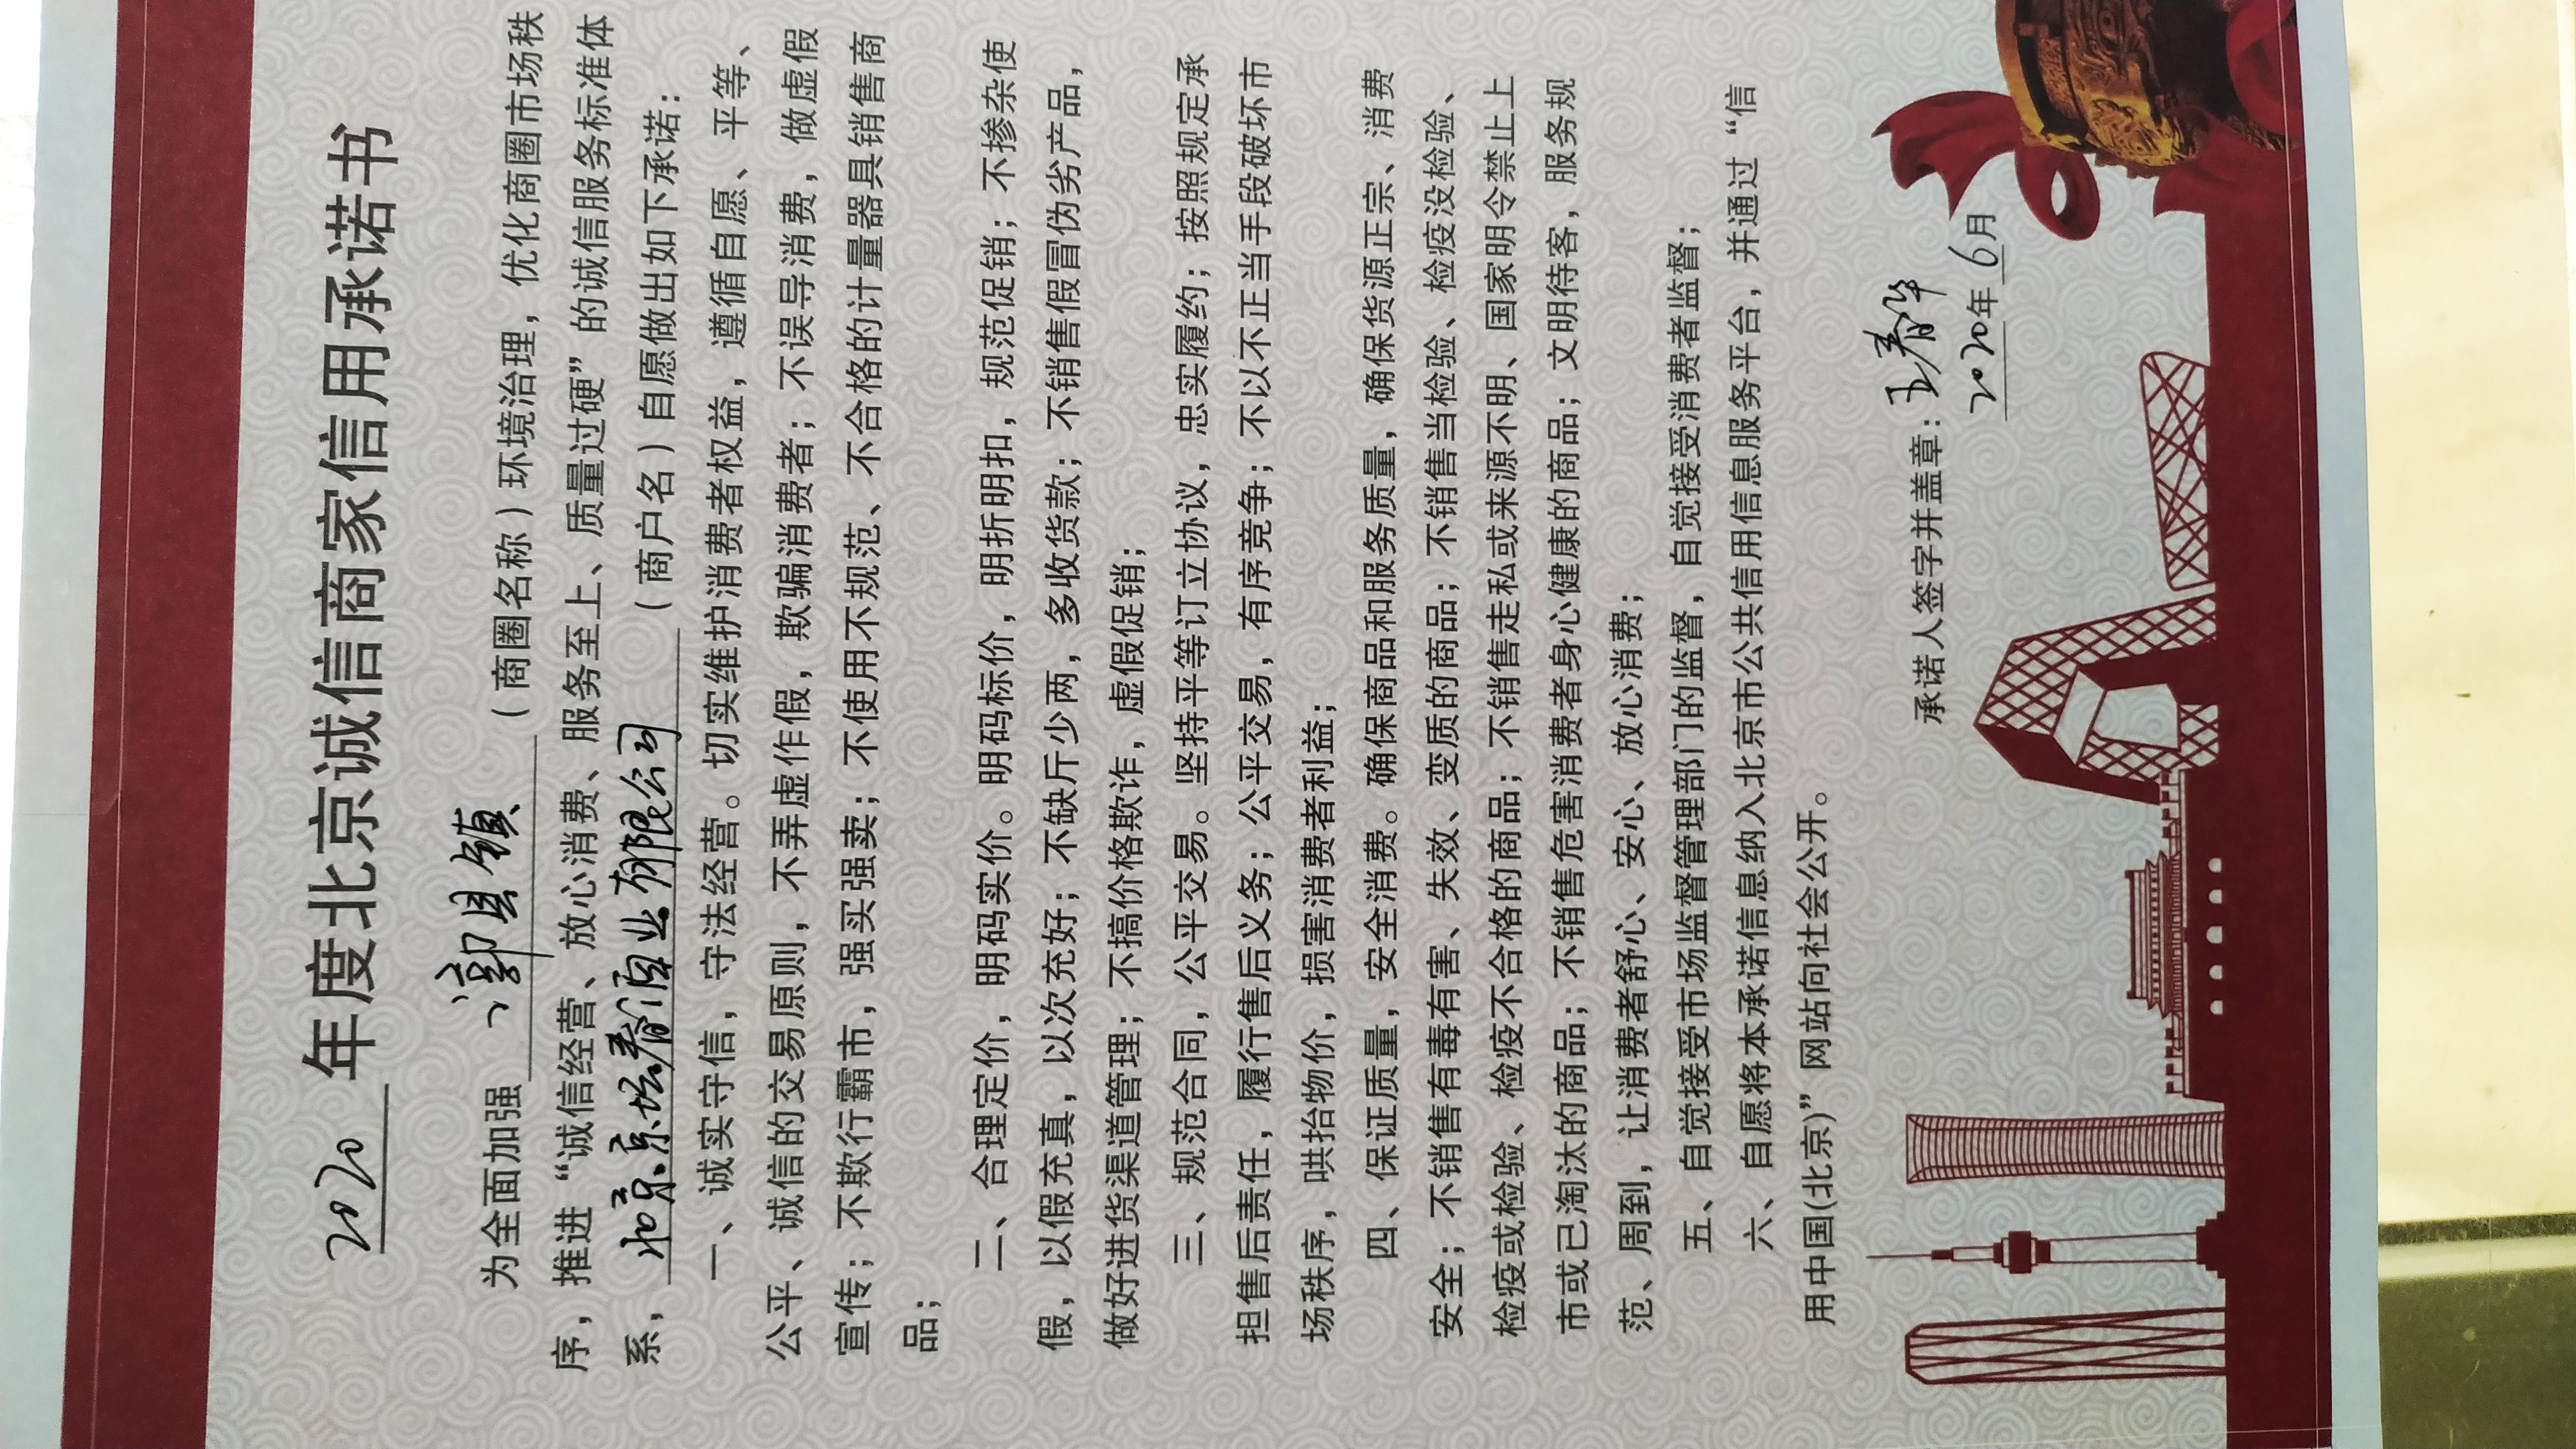 2020 年度北京诚信商家信用承诺书
为全面加强 漷县镇 （商圈名称）环境治理，优化商圈市场秩
序，推进“诚信经营、放心消费、服务至上、质量过硬”的诚信服务标准体
系，北京京坛春酒业有限公司（商户名）自愿做出如下承诺：
一、诚实守信，守法经营。切实维护消费者权益，遵循自愿、平等、
公平、诚信的交易原则，不弄虚作假，欺骗消费者；不误导消费，做虚假
宣传；不欺行霸市，强买强卖；不使用不规范、不合格的计量器具销售商
品；
二、合理定价，明码实价。明码标价，明折明扣，规范促销；不掺杂使
假，以假充真，以次充好；不缺斤少两，多收货款；不销售假冒伪劣产品，
做好进货渠道管理；不搞价格欺诈，虚假促销；
三、规范合同，公平交易。坚持平等订立协议，忠实履约；按照规定承
担售后责任，履行售后义务；公平交易，有序竞争；不以不正当手段破坏市
场秩序，哄抬物价，损害消费者利益；
四、保证质量，安全消费。确保商品和服务质量，确保货源正宗、消费
安全；不销售有毒有害、失效、变质的商品；不销售当检验、检疫没检验、
检疫或检验、检疫不合格的商品；不销售走私或来源不明、国家明令禁止上
市或已淘汰的商品；不销售危害消费者身心健康的商品；文明待客，服务规
范、周到，让消费者舒心、安心、放心消费；
五、自觉接受市场监督管理部门的监督，自觉接受消费者监督；
六、自愿将本承诺信息纳入北京市公共信用信息服务平台，并通过“信
用中国(北京)”网站向社会公开。
承诺人签字并盖章：王春华
2020年6月